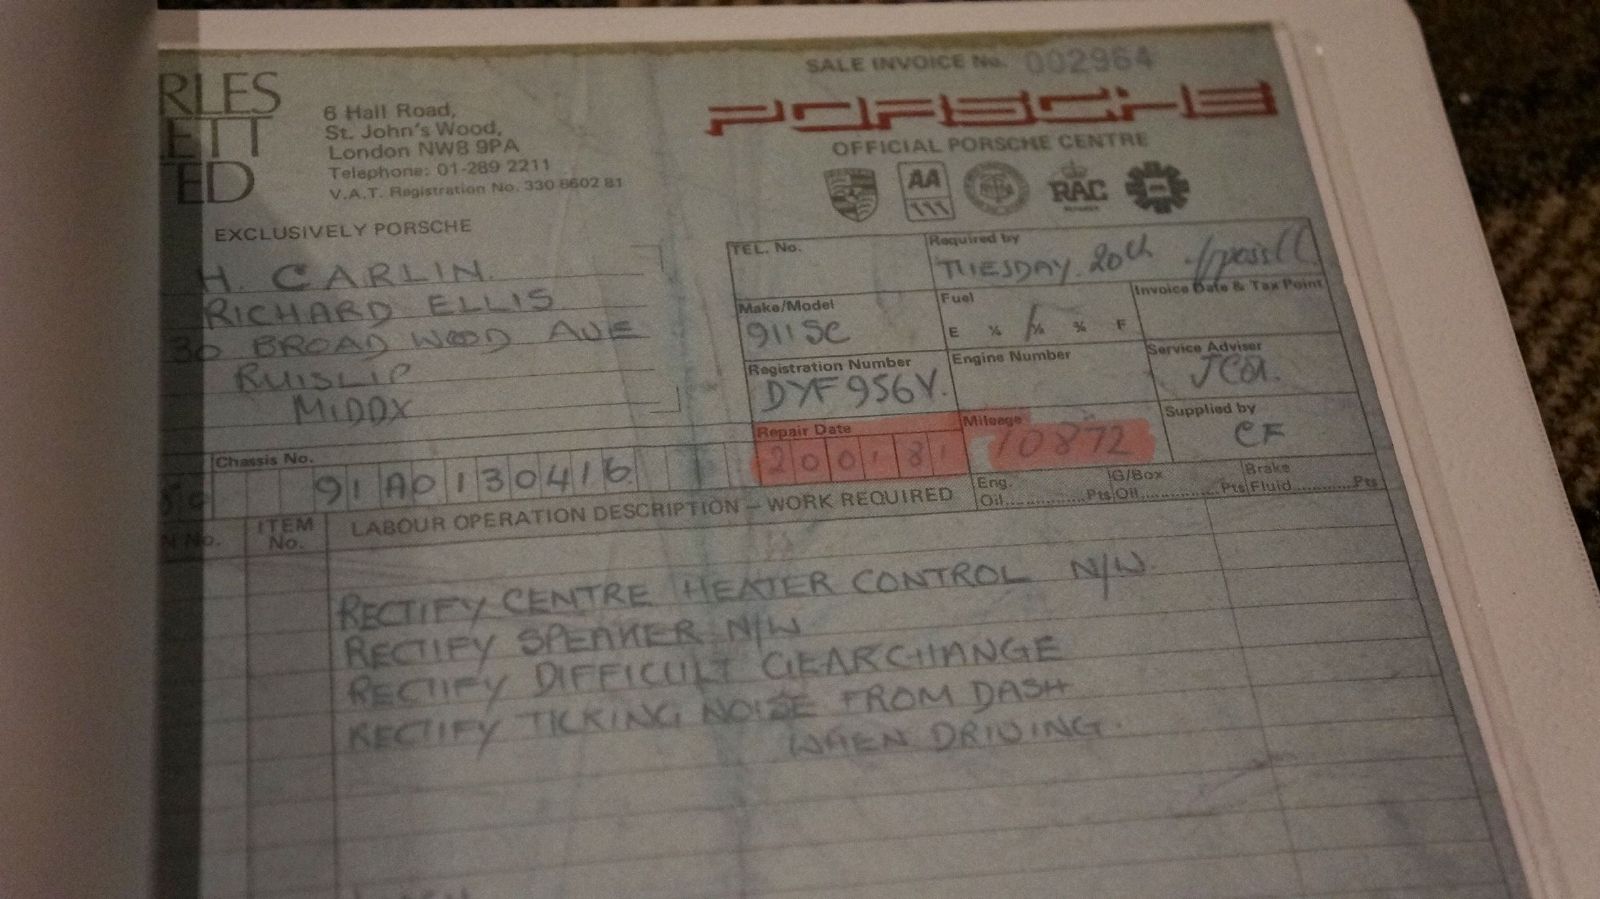 SALE INVOICE No. 002964
RLES
ETT
ED
6 Hall Road,
St. John's Wood,
London NW8 9PA
Telephone: 01-289 2211
V.A.T. Registration No. 330 8602 81
EXCLUSIVELY PORSCHE
PORSCHE
OFFICIAL PORSCHE CENTRE
AA
RAC
H. CARLIN.
RICHARD ELLIS
30 BROAD WOOD AVE
RUISLIP
MIDDX
TEL. No.
Required by
TUESDAY 20th
Make/Model
911SC
Fuel
E ¼ ½ ¾ F
Invoice Date & Tax Point
Registration Number
DYF956V.
Engine Number
Service Adviser
Repair Date
200181
Mileage
10872
Supplied by
CF
Chassis No.
91A0130416
Eng. Oil..........Pts
G/Box Oil..........Pts
Brake Fluid..........Pts
N No.
ITEM No.
LABOUR OPERATION DESCRIPTION – WORK REQUIRED
RECTIFY CENTRE HEATER CONTROL N/W
RECTIFY SPEAKER N/W
RECTIFY DIFFICULT GEARCHANGE
RECTIFY TICKING NOISE FROM DASH
WHEN DRIVING.